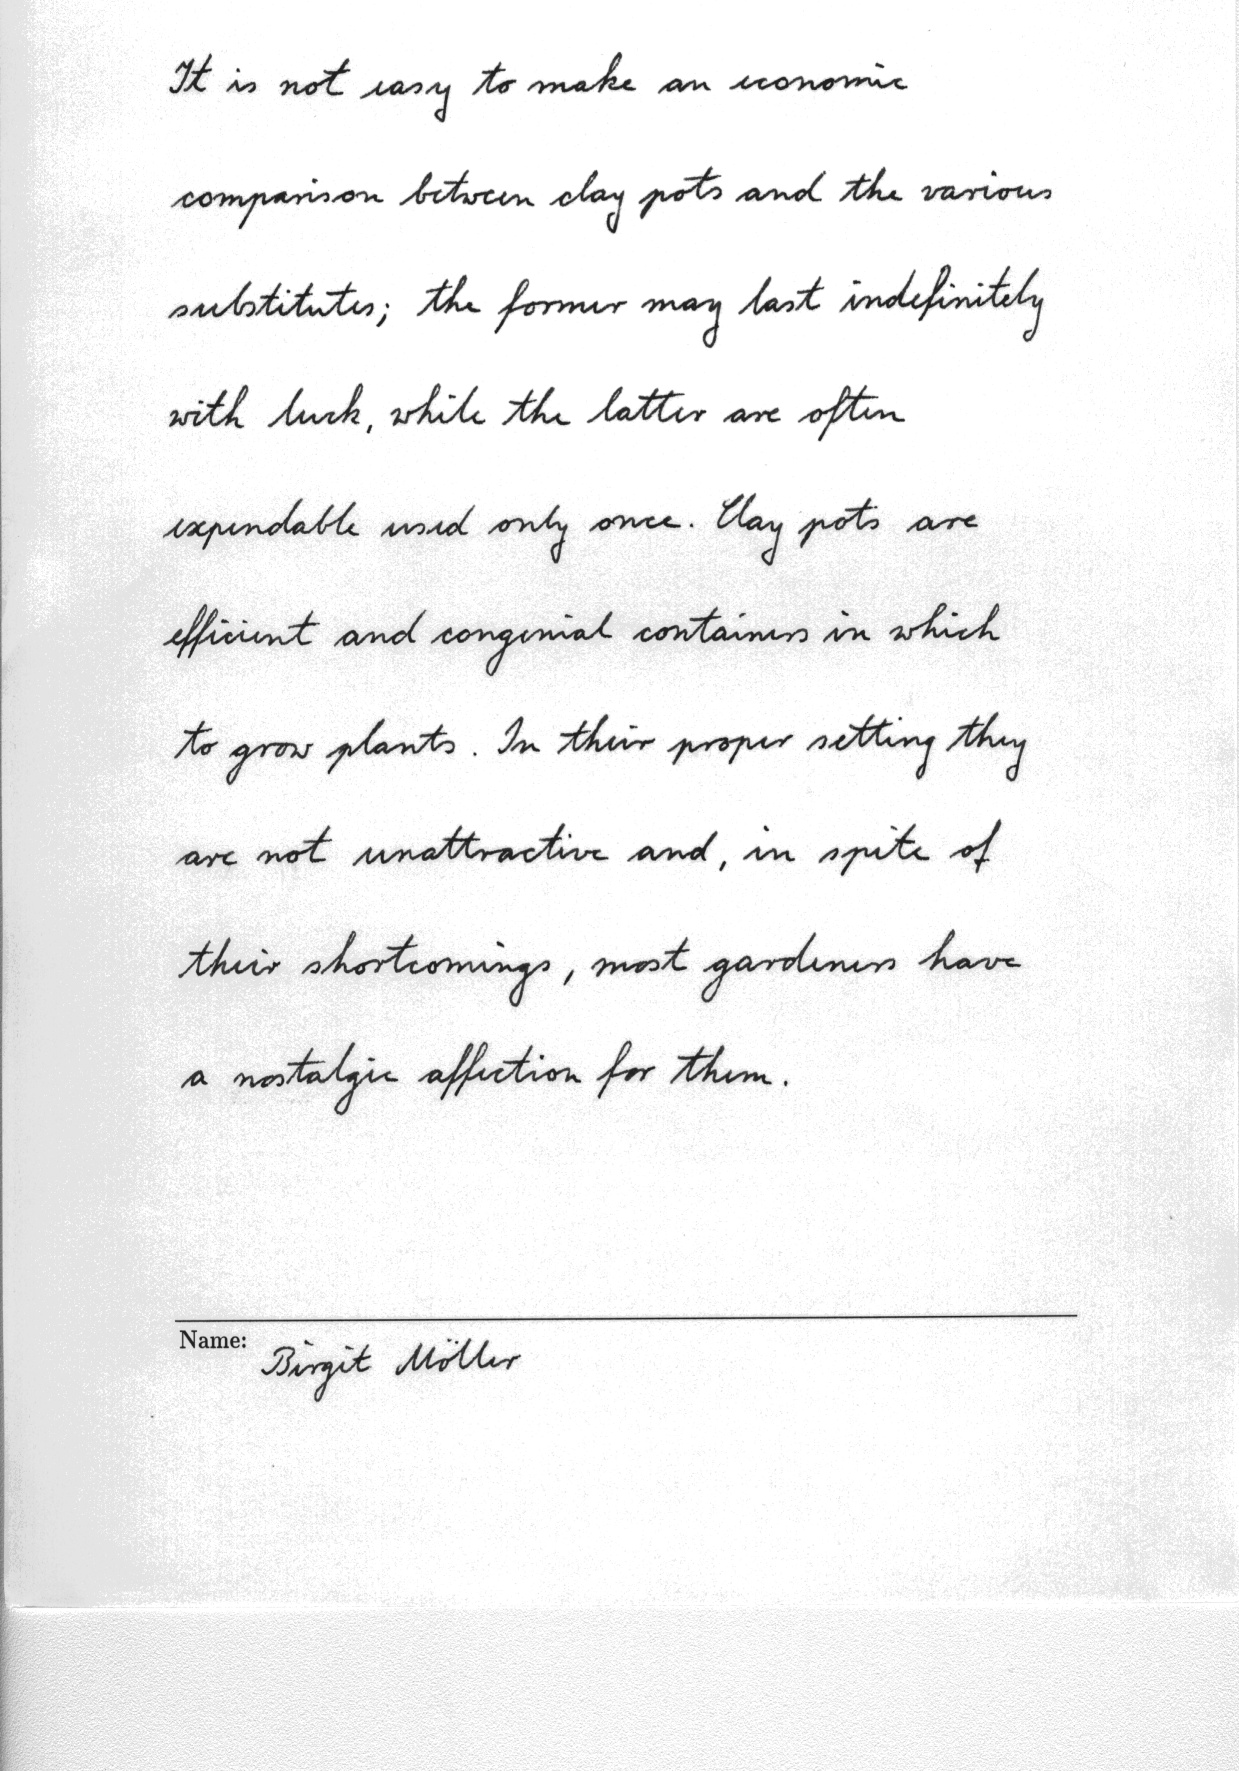 It is not easy to make an economic
comparison between clay pots and the various
substitutes; the former may last indefinitely
with luck, while the latter are often
expendable used only once. Clay pots are
efficient and congenial containers in which
to grow plants. In their proper setting they
are not unattractive and, in spite of
their shortcomings, most gardeners have
a nostalgic affection for them.
Name: Birgit Möller